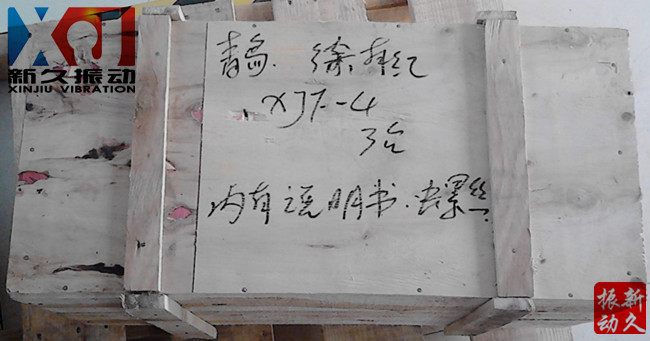 新久振动
XINJIU VIBRATION
青岛. 徐
XJF-4
3台
内有说明书.螺丝
新久
振动